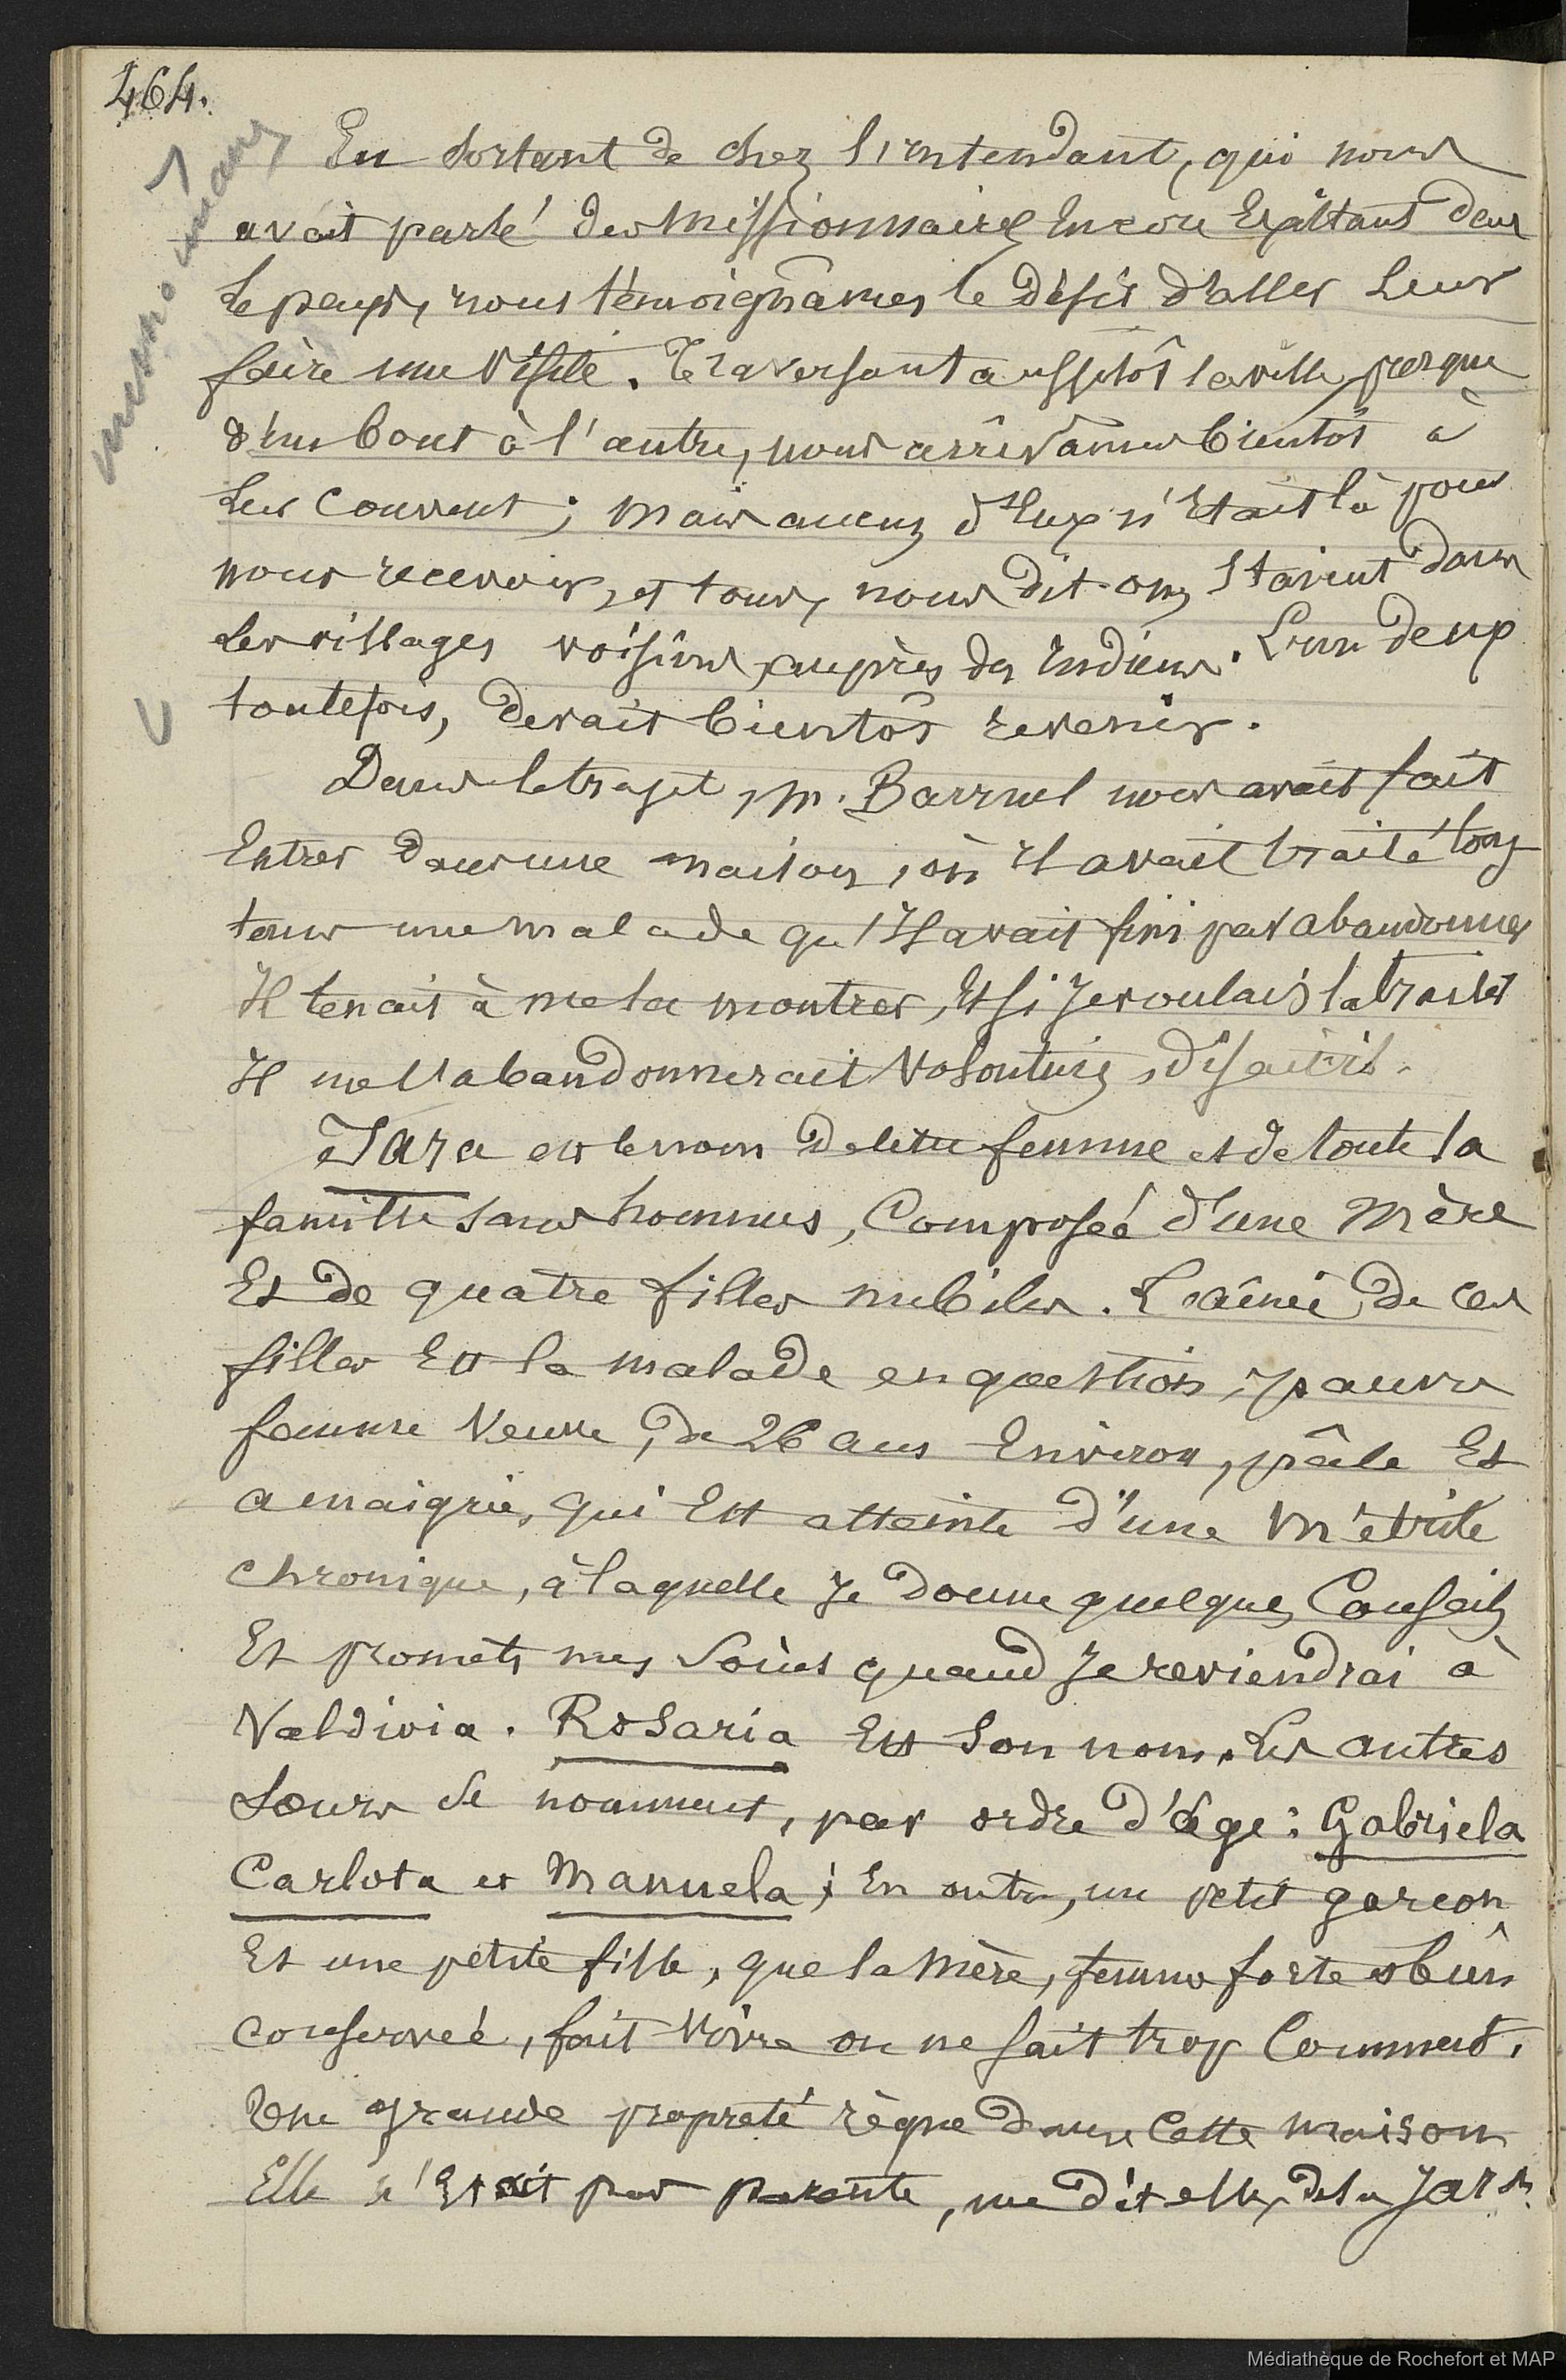 464.
missionnaires
En sortant de chez l'intendant, qui nous
avait parlé des Missionnaires Encore Existant dans
le pays, nous témoignâmes le désir d'aller leur
faire une visite. Traversant aussitôt la ville presque
d'un bout à l'autre, nous arrivâmes bientôt à
leur couvent ; mais aucun d'Eux n'Etait là pour
nous recevoir, et tous, nous dit-on, Etaient dans
les villages voisins, auprès des Indiens. L'un deux
toutefois, devait bientôt revenir.
Dans le trajet, M. Barruel nous avait fait
Entrer dans une maison, où il avait traité long
tems une malade qu'Il avait fini par abandonner
Il tenait à me la montrer, Et si Je voulais la traiter
Il me l'abandonnerait volontiers, disait-il.
Jara est le nom de cette femme et de toute la
famille sans hommes, Composée d'une Mère
Et de quatre filles nubiles. L'aînée de ces
filles Est la malade en question, pauvre
femme Veuve, de 26 ans Environ, pâle Et
amaigrie, qui Est atteinte d'une Métrite
chronique, à laquelle Je donne quelques Conseils
Et promets mes Soins quand Je reviendrai à
Valdivia. Rosaria Est Son nom. Les autres
Soeurs se nomment, par ordre d'âge : Gabriela
Carlota et Manuela ; En outre, un petit garcon
Et une petite fille, que la Mère, femme forte et bien
conservée, fait vivre on ne sait trop Comment.
Une grande propreté règne dans Cette maison
Elle n'Etait pas parente, me dit elle, de la Jara
Médiathèque de Rochefort et MAP